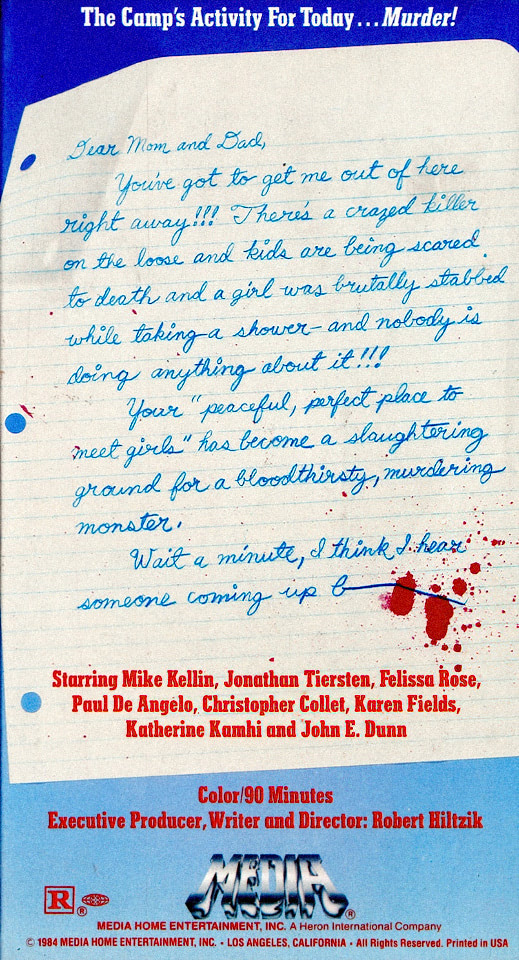 The Camp's Activity For Today...Murder!
Dear Mom and Dad,
You've got to get me out of here
right away!!! There's a crazed killer
on the loose and kids are being scared
to death and a girl was brutally stabbed
while taking a shower—and nobody is
doing anything about it!!!
Your "peaceful, perfect place to
meet girls" has become a slaughtering
ground for a bloodthirsty, murdering
monster.
Wait a minute, I think I hear
someone coming up b
Starring Mike Kellin, Jonathan Tiersten, Felissa Rose,
Paul De Angelo, Christopher Collet, Karen Fields,
Katherine Kamhi and John E. Dunn
Color/90 Minutes
Executive Producer, Writer and Director: Robert Hiltzik
MEDIA ®
R ®
MEDIA HOME ENTERTAINMENT, INC. A Heron International Company
© 1984 MEDIA HOME ENTERTAINMENT, INC. • LOS ANGELES, CALIFORNIA • All Rights Reserved. Printed in USA